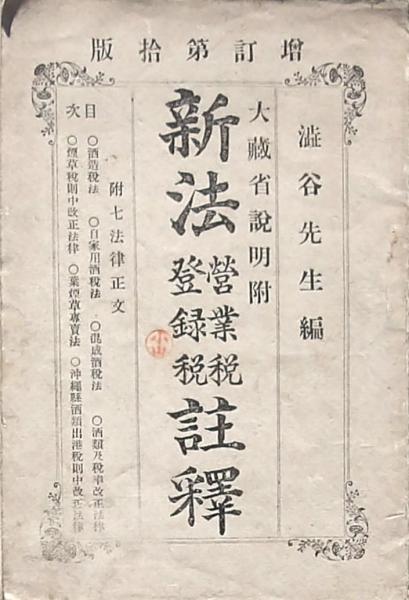 増訂第拾版
澁谷先生編
大藏省說明附
新法營業税登録税註釋
附七法律正文
目次
○酒造税法 ○自家用酒税法 ○混成酒税法 ○酒類及税率改正法律
○煙草税則中改正法律 ○葉煙草專賣法 ○沖繩縣酒類出港税則中改正法律